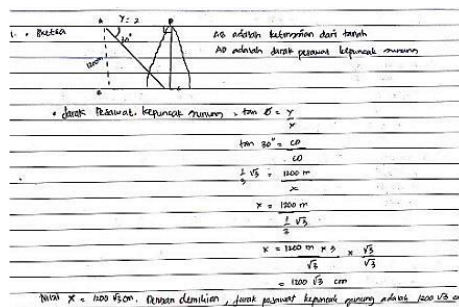 1. • Sketsa
A
Y = ?
D
30°
1200 m
B
C
AB adalah ketinggian dari tanah
AD adalah jarak pesawat kepuncak gunung
• Jarak Pesawat kepuncak gunung = tan θ = y/x
tan 30° = CD/CO
1/3 √3 = 1200 m/x
x = 1200 m / 1/3 √3
x = 1200 m × 3/√3 × √3/√3
= 1200 √3 cm
Nilai x = 1200 √3 cm. Dengan demikian, jarak pesawat kepuncak gunung adalah 1200 √3